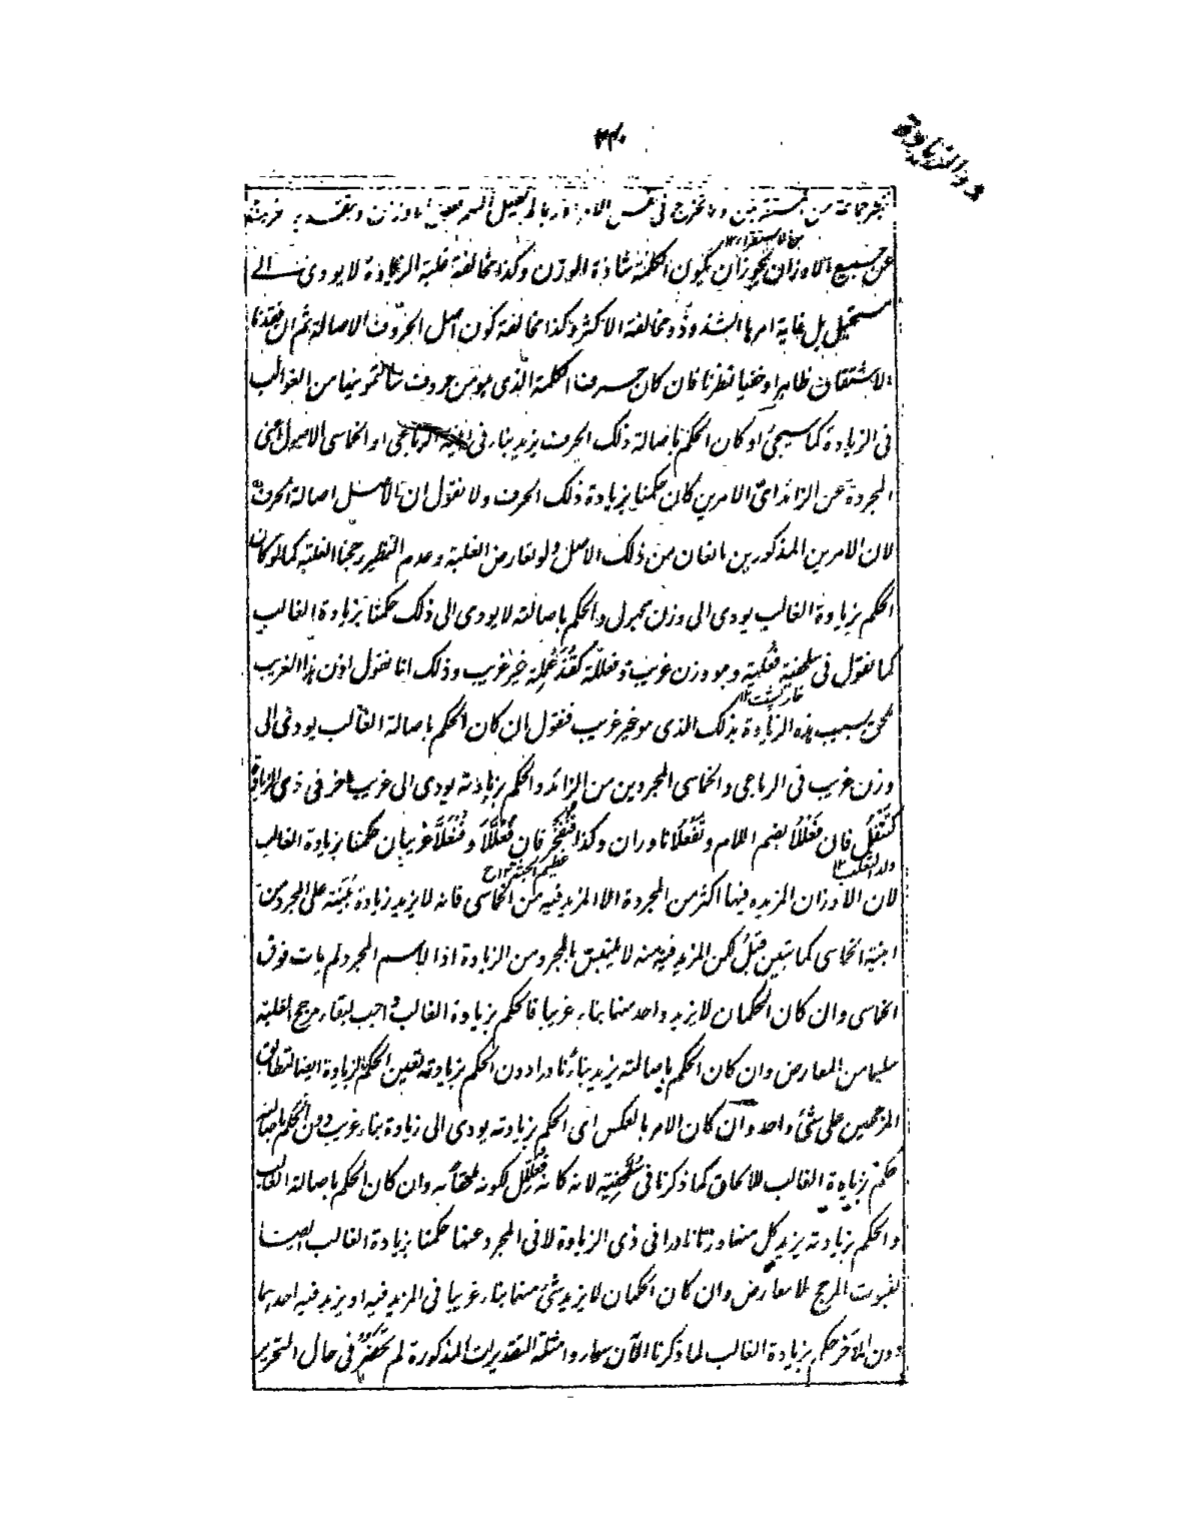 ذو الزيادة
٣٤٠
عن جميع الاوزان يجوز ان يكون الكلمة شاذة الوزن وكذا مخالفة غلبة الزيادة لا يودى الى
مستحيل بل غاية امرها الشذوذ ومخالفة الاكثر وكذا مخالفة كون اصل الحروف الاصالة ثم ان فقدنا
الاشتقاق ظاهرا وخفيا نظرنا فان كان حرف الكلمة الذى هو من حروف سألتمونيها من الغوالب
فى الزيادة كما سيجئ او كان الحكم باصالة ذلك الحرف يزيد بناء فى ابنية الرباعى او الخماسى الاصول اعنى
المجردة عن الزائد اى الامرين كان حكمنا بزيادة ذلك الحرف ولا نقول ان الاصل اصالة الحرف
لان الامرين المذكورين مانعان من ذلك الاصل ولو تعارض الغلبة وعدم النظير رجحنا الغلبة كما لو كان
الحكم بزيادة الغالب يودى الى وزن مجهول والحكم باصالته لا يودى الى ذلك حكمنا بزيادة الغالب
كما نقول فى سلحفية فعلية وهو وزن غريب وفعللة كقذعملة غير غريب وذلك انا نقول اذن هذا الغريب
ملحق بسبب هذه الزيادة بذلك الذى هو غير غريب فنقول ان كان الحكم باصالة الغالب يودى الى
وزن غريب فى الرباعى والخماسى المجردين من الزائد والحكم بزيادته يودى الى غريب اخر فى ذى الزيادة
كتتفل فان فعللا بضم اللام وتفعلا نادران وكذا قنفخر فان فعللا وفنعلا غريبان حكمنا بزيادة الغالب
ولد الثعلب ١٢
عظيم الجثة ١٢ ح
لان الاوزان المزيده فيها اكثر من المجردة الا المزيد فيه من الخماسى فانه لا يزيد زيادة بينة على المجرد من
ابنية الخماسى كما تبين قبل لكن المزيد فيه منه لا يلتبق بالمجرد من الزيادة اذا الاسم المجرد لم يات فوق
الخماسى وان كان الحكمان لا يزيد واحد منهما بناء غريبا فالحكم بزيادة الغالب واجب لبقاء مرجح اغلبية
سليما من المعارض وان كان الحكم باصالته يزيد بناء نادرا دون الحكم بزيادته تعين الحكم بالزيادة ايضا لتطابق
المرجحين على شئ واحد وان كان الامر بالعكس اى الحكم بزيادته يودى الى زيادة بناء غريب دون الحكم باصالته
حكم بزيادة الغالب للالحاق كما ذكرنا فى سلحفية لانه كانه فعلل لكونه ملحقا به وان كان الحكم باصالة الغالب
والحكم بزيادته يزيد كل منهما وزنا نادرا فى ذى الزيادة لا فى المجرد عنها حكمنا بزيادة الغالب ايضا
لثبوت المرجح بلا معارض وان كان الحكمان لا يزيد شئ منهما بناء غريبا فى المزيد فيه او يزيد فيه احدهما
دون الآخر حكم بزيادة الغالب لما ذكرنا الآن سواء وامثلة التقديرات المذكورة لم تحضرنى فى حال التحرير